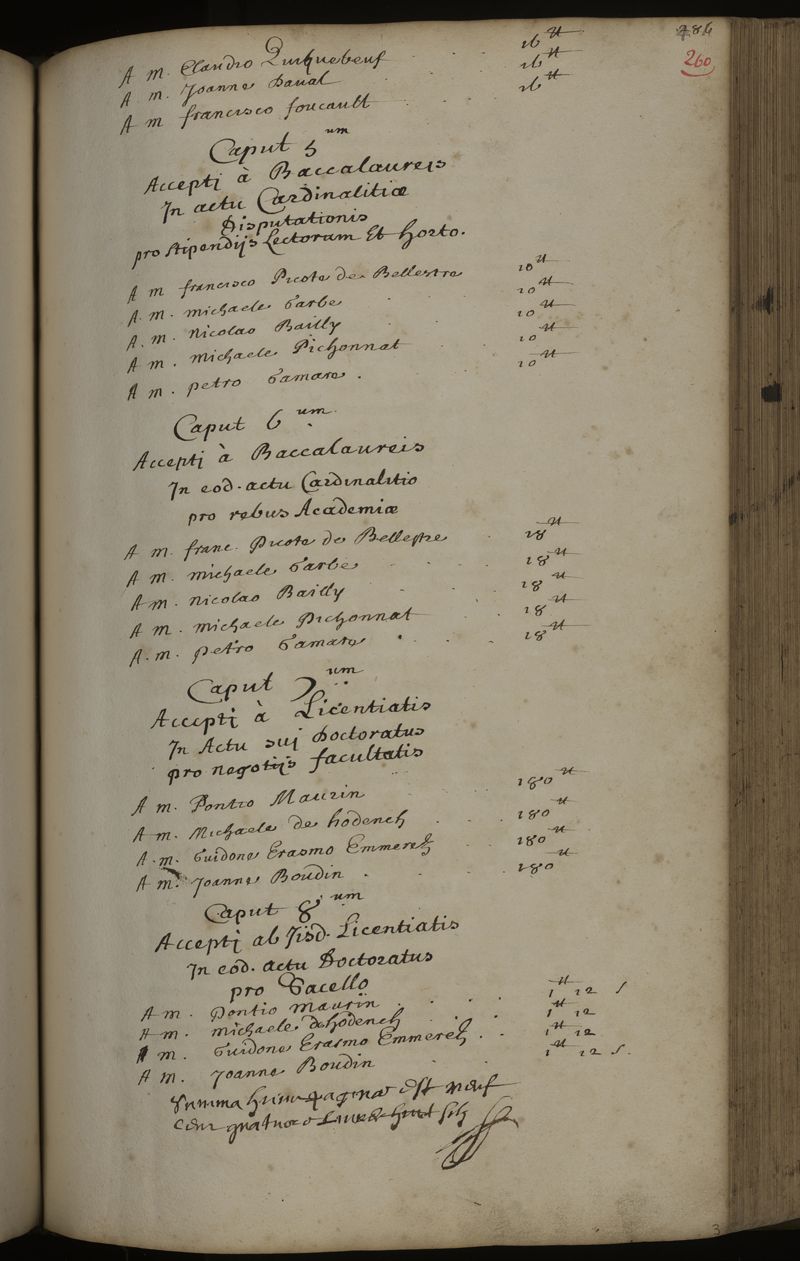 286
260
A m. Claudio Quiquebeuf 16 ₶
A m. Joanne Daval 16 ₶
A m francisco foucault 16 ₶
Caput 5 um
Acceptj à Baccalaureis
In actu Cardinalitiæ
Disputationis
pro stipendijs Lectorum Et horto.
A m francisco Picote de Bellestre 10 ₶
A. m. michaele Garbe 10 ₶
A. m. Nicolao Bailly 10 ₶
A m. Michaele Pichonnat 10 ₶
A m. petro Gamare. 10 ₶
Caput 6 um.
Acceptj à Baccalaureis
In eod. actu Cardinalitio
pro rebus Academiæ
A m. franc. Picote de Bellestre 18 ₶
A m. michaele Garbe 18 ₶
A m. Nicolao Bailly 18 ₶
A m. michaele Pichonnat 18 ₶
A. m. petro Gamare 18 ₶
Caput 7 um
Acceptj à Licentiatis
In Actu suj Doctoratus
pro negotijs facultatis
A m. Pontio Maurin 180 ₶
A m. Michaele de hodencq 180 ₶
A. m. Guidone Erasmo Emmerez 180 ₶
A m. Joanne Boudin. 180 ₶
Caput 8 um
Acceptj ab Jisd. Licentiatis
In eod. actu Doctoratus
pro Sacello
A m. Pontio maurin 1 ₶ 12 s
A m. michaele de hodencq 1 ₶ 12
A m. Guidone Erasmo Emmerez 1 ₶ 12
A m. Joanne Boudin 1 ₶ 12 s.
Summa huius paginæ est neuf
cens quatuor Liures huit solz
3